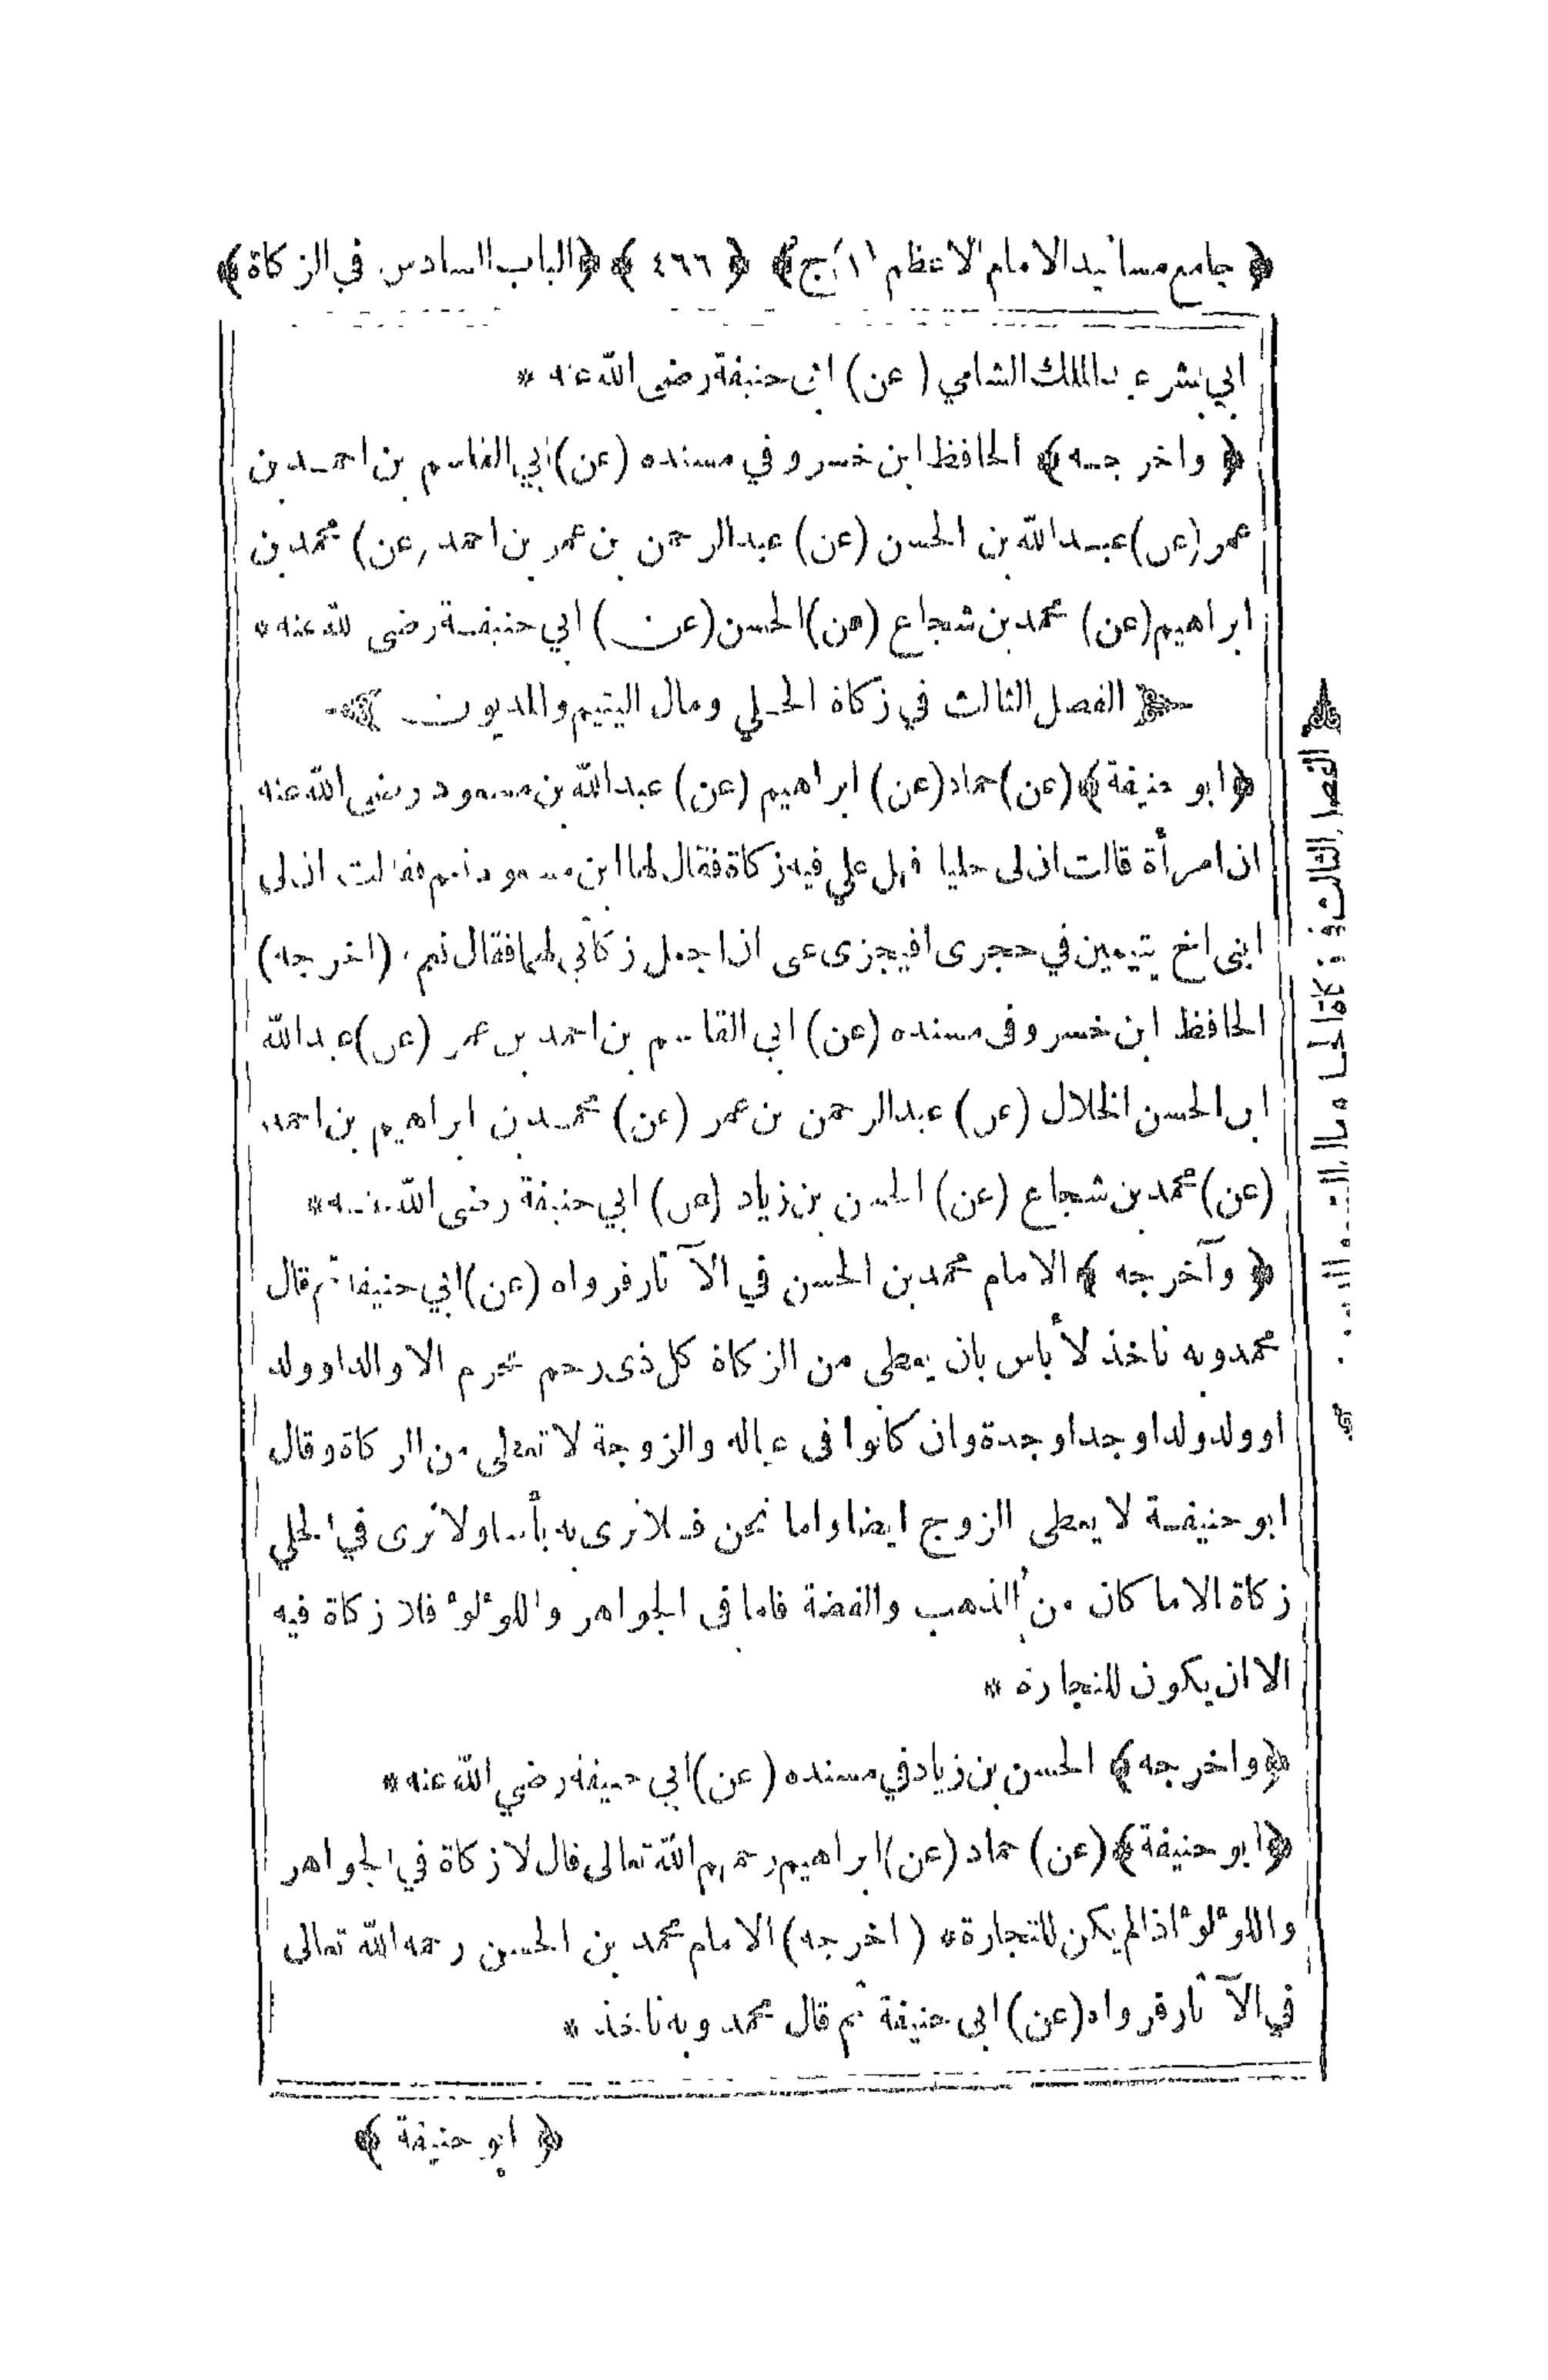 ﴿ جامع مسانيد الامام الاعظم ١ ج ﴾ ﴿ ٤٦٦ ﴾ ﴿ الباب السادس في الزكاة ﴾
ابي بشر عبد الملك الشامي (عن) ابي حنيفة رضى الله عنه *
﴿ واخرجه ﴾ الحافظ ابن خسرو في مسنده (عن) ابي القاسم بن احمد بن
عمر (عن) عبد الله بن الحسن (عن) عبد الرحمن بن عمر بن احمد (عن) محمد بن
ابراهيم (عن) محمد بن شجاع (عن) الحسن (عن) ابي حنيفة رضى الله عنه *
الفصل الثالث في زكاة الحلي ومال اليتيم والمديون
﴿ ابو حنيفة ﴾ (عن) حماد (عن) ابراهيم (عن) عبد الله بن مسعود رضي الله عنه
ان امرأة قالت ان لى حليا فهل علي فيه زكاة فقال لها ابن مسعود نعم فقالت ان لى
ابنى اخ يتيمين في حجرى افيجزى عى ان اجعل زكاتي لهما فقال نعم * (اخرجه)
الحافظ ابن خسرو فى مسنده (عن) ابي القاسم بن احمد بن عمر (عن) عبد الله
ابن الحسن الخلال (عن) عبد الرحمن بن عمر (عن) محمد بن ابراهيم بن احمد
(عن) محمد بن شجاع (عن) الحسن بن زياد (عن) ابي حنيفة رضى الله عنه *
﴿ وآخرجه ﴾ الامام محمد بن الحسن في الآثار فرواه (عن) ابي حنيفة ثم قال
محمد وبه ناخذ لا بأس بان يعطى من الزكاة كل ذى رحم محرم الا والدا وولد
او ولد ولد او جد او جدة وان كانوا فى عياله والزوجة لا تعطى من الزكاة وقال
ابو حنيفة لا يعطى الزوج ايضا واما نحن فلا نرى به بأسا ولا نرى في الحلي
زكاة الا ما كان من الذهب والفضة فاما فى الجواهر واللؤلؤ فلا زكاة فيه
الا ان يكون للتجارة *
﴿ واخرجه ﴾ الحسن بن زياد في مسنده (عن) ابي حنيفة رضي الله عنه *
﴿ ابو حنيفة ﴾ (عن) حماد (عن) ابراهيم رحمهم الله تعالى قال لا زكاة في الجواهر
واللؤلؤ اذا لم يكن للتجارة * (اخرجه) الامام محمد بن الحسن رحمه الله تعالى
في الآثار فرواه (عن) ابى حنيفة ثم قال محمد وبه ناخذ *
﴿ ابو حنيفة ﴾
الفصل الثالث في زكاة